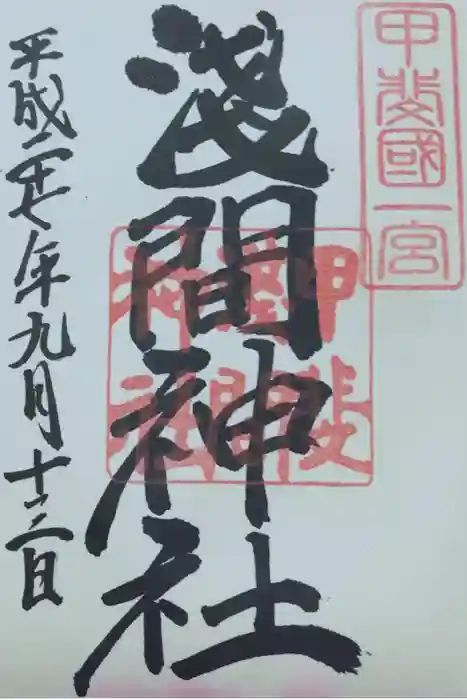 甲斐國一宮
淺間神社
平成二十七年九月十三日